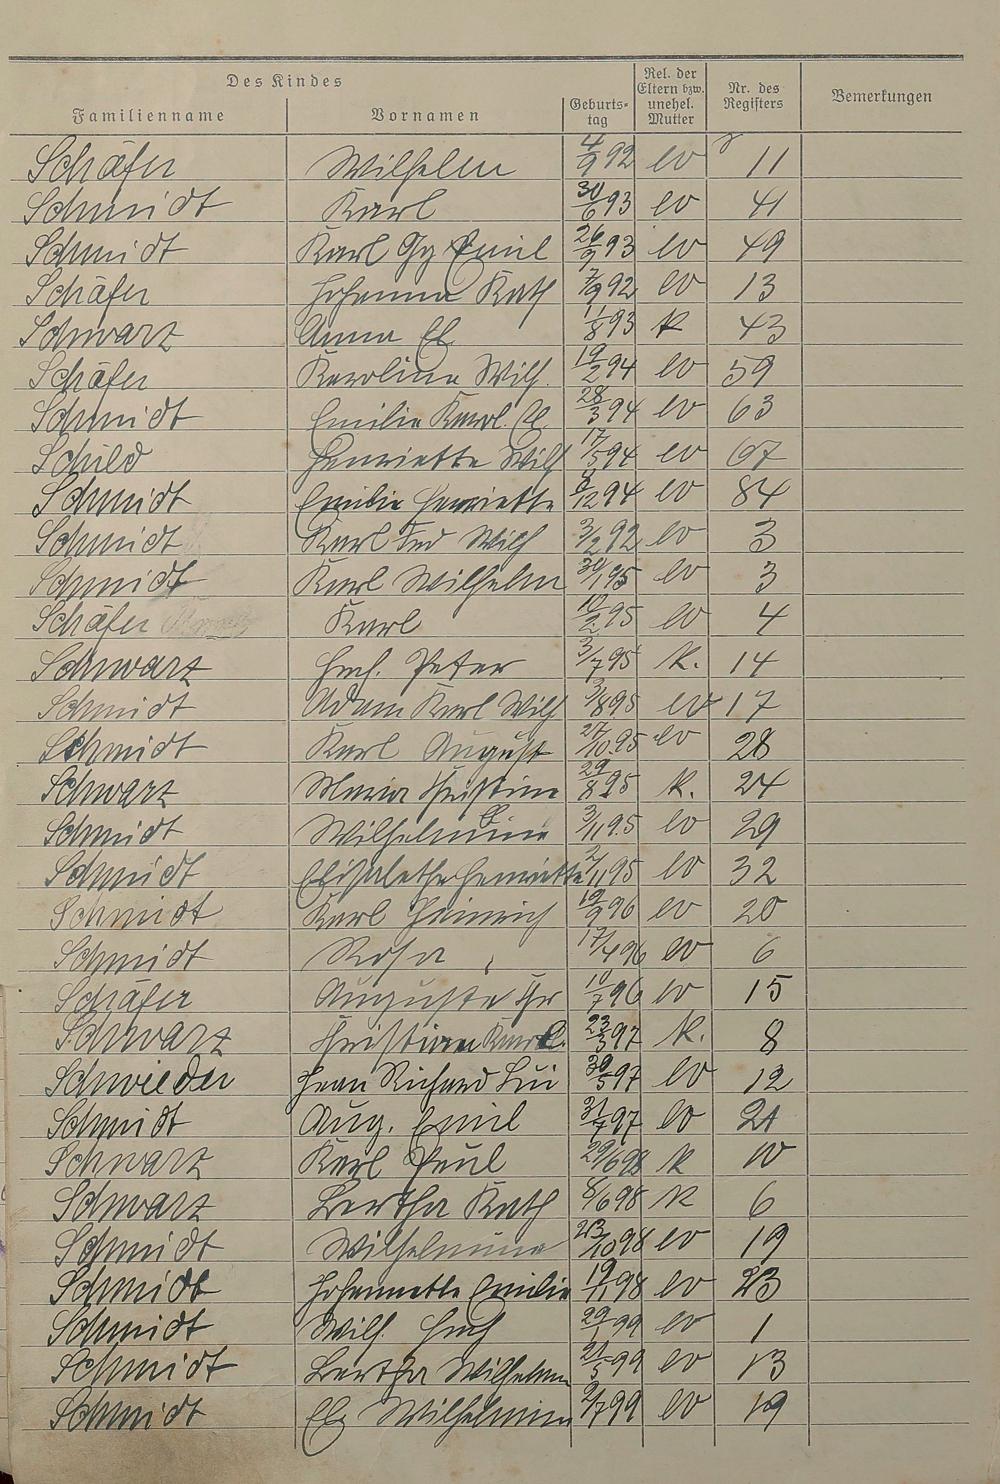 Des Kindes
Familienname Vornamen Geburts-tag Rel. der Eltern bzw. unehel. Mutter Nr. des Registers Bemerkungen
Schäfer Wilhelm 4/9 92 ev 11
Schmidt Karl 30/6 93 ev 41
Schmidt Karl Gg Emil 26/9 93 ev 49
Schäfer Johanna Kath 7/9 92 ev 13
Schwarz Anna El 11/8 93 k 43
Schäfer Karolina Wilh. 19/2 94 ev 59
Schmidt Emilie Karol. 28/3 94 ev 63
Schild Henriette Wilh 17/5 94 ev 67
Schmidt Emilie Henriette 8/12 94 ev 84
Schmidt Karl Wilh 3/2 92 ev 3
Schmidt Karl Wilhelm 30/1 95 ev 3
Schäfer Karl 10/2 95 ev 4
Schwarz Hch. Peter 3/7 95 k. 14
Schmidt Adam Karl Wilh 3/8 95 ev 17
Schmidt Karl August 27/10. 95 ev 28
Schwarz Maria Christine 29/8 95 k. 24
Schmidt Wilhelmine 3/11 95 ev 29
Schmidt Elisabetha Henriette 11 95 ev 32
Schmidt Karl Heinrich 19/9 96 ev 20
Schmidt Rosa 17/4 96 ev 6
Schäfer Auguste Chr 10/7 96 ev 15
Schwarz Christian Karl. 23/3 97 k. 8
Schwieder Jean Richard Lui 30/5 97 ev 12
Schmidt Aug. Emil 31/7 97 ev 21
Schwarz Karl Paul 29/6 98 k 10
Schwarz Bertha Kath 8/6 98 k 6
Schmidt Wilhelmina 23/10 98 ev 19
Schmidt Johannette Emilie 19/11 98 ev 23
Schmidt Wilh. Hch 29/1 99 ev 1
Schmidt Bertha Wilhelm 21/5 99 ev 13
Schmidt Els Wilhelmina 2/7 99 ev 19